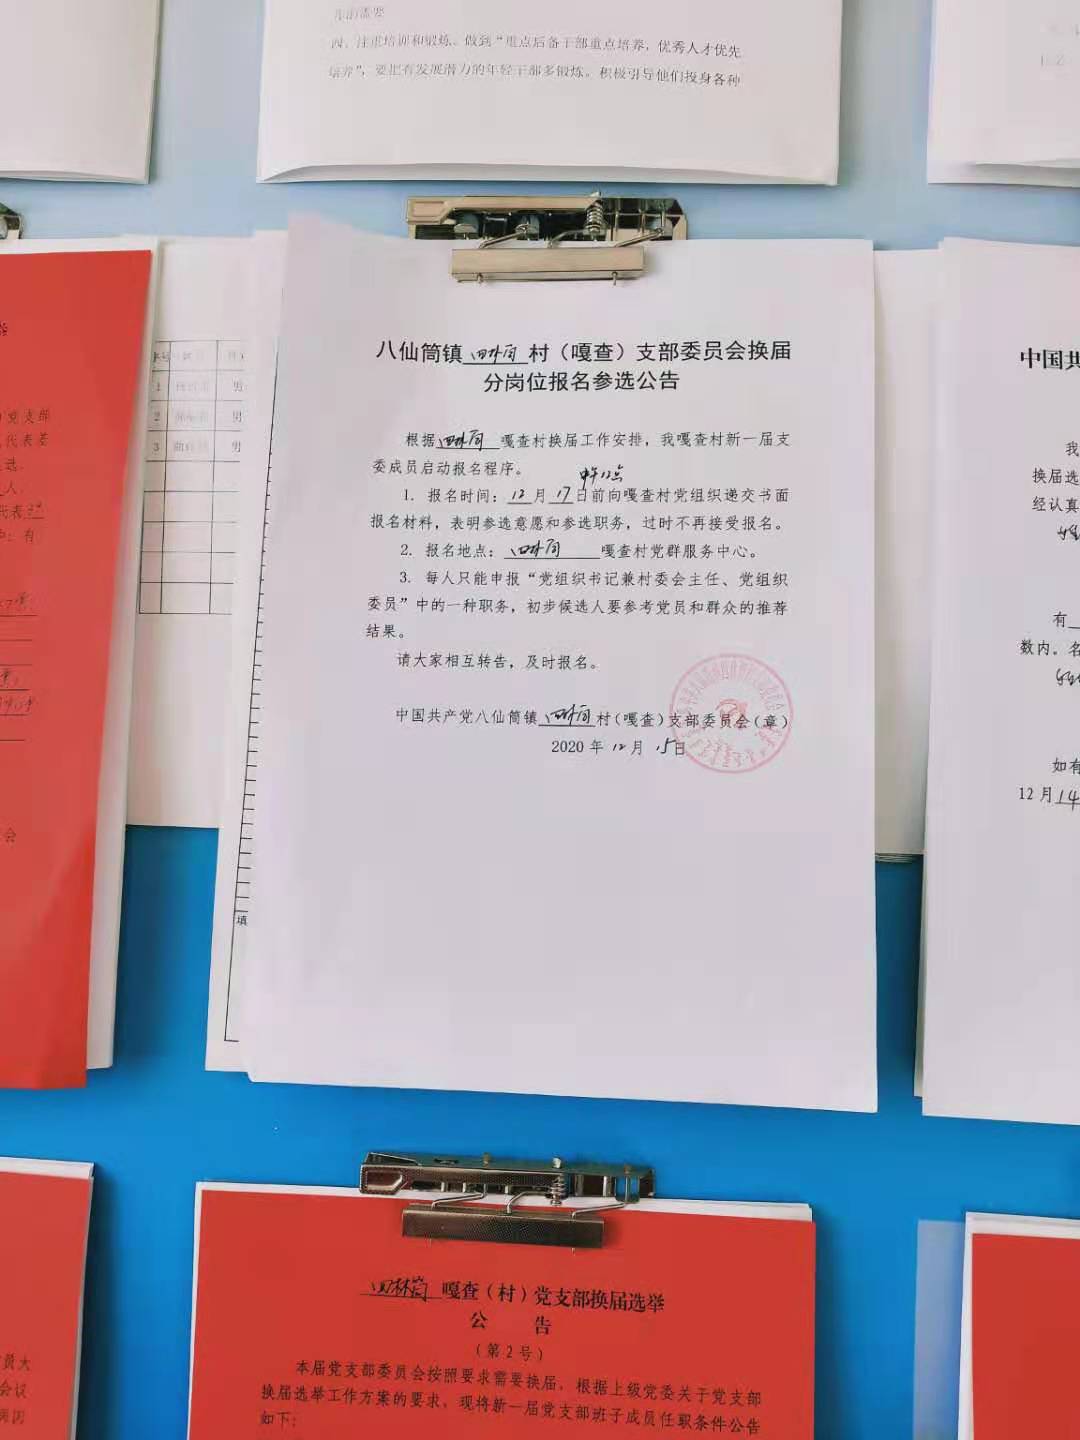 四、注重培训和锻炼。做到“重点后备干部重点培养，优秀人才优先
培养”，要把有发展潜力的年轻干部多锻炼。积极引导他们投身各种
八仙筒镇四林筒村（嘎查）支部委员会换届
分岗位报名参选公告
根据四林筒嘎查村换届工作安排，我嘎查村新一届支
委成员启动报名程序。
1. 报名时间：12月17日前向嘎查村党组织递交书面
报名材料，表明参选意愿和参选职务，过时不再接受报名。
2. 报名地点：四林筒嘎查村党群服务中心。
3. 每人只能申报“党组织书记兼村委会主任、党组织
委员”中的一种职务，初步候选人要参考党员和群众的推荐
结果。
请大家相互转告，及时报名。
中国共产党八仙筒镇四林筒村（嘎查）支部委员会（章）
2020 年 12 月 15 日
1 男
2 男
3 男
填
党支部
代表差
选。
人。
代表
有
会
中国共
我
换届选
经认真
有
数内。名
如有
12月14
四林筒嘎查（村）党支部换届选举
公 告
（第2号）
本届党支部委员会按照要求需要换届，根据上级党委关于党支部
换届选举工作方案的要求，现将新一届党支部班子成员任职条件公告
如下：
员大
会议